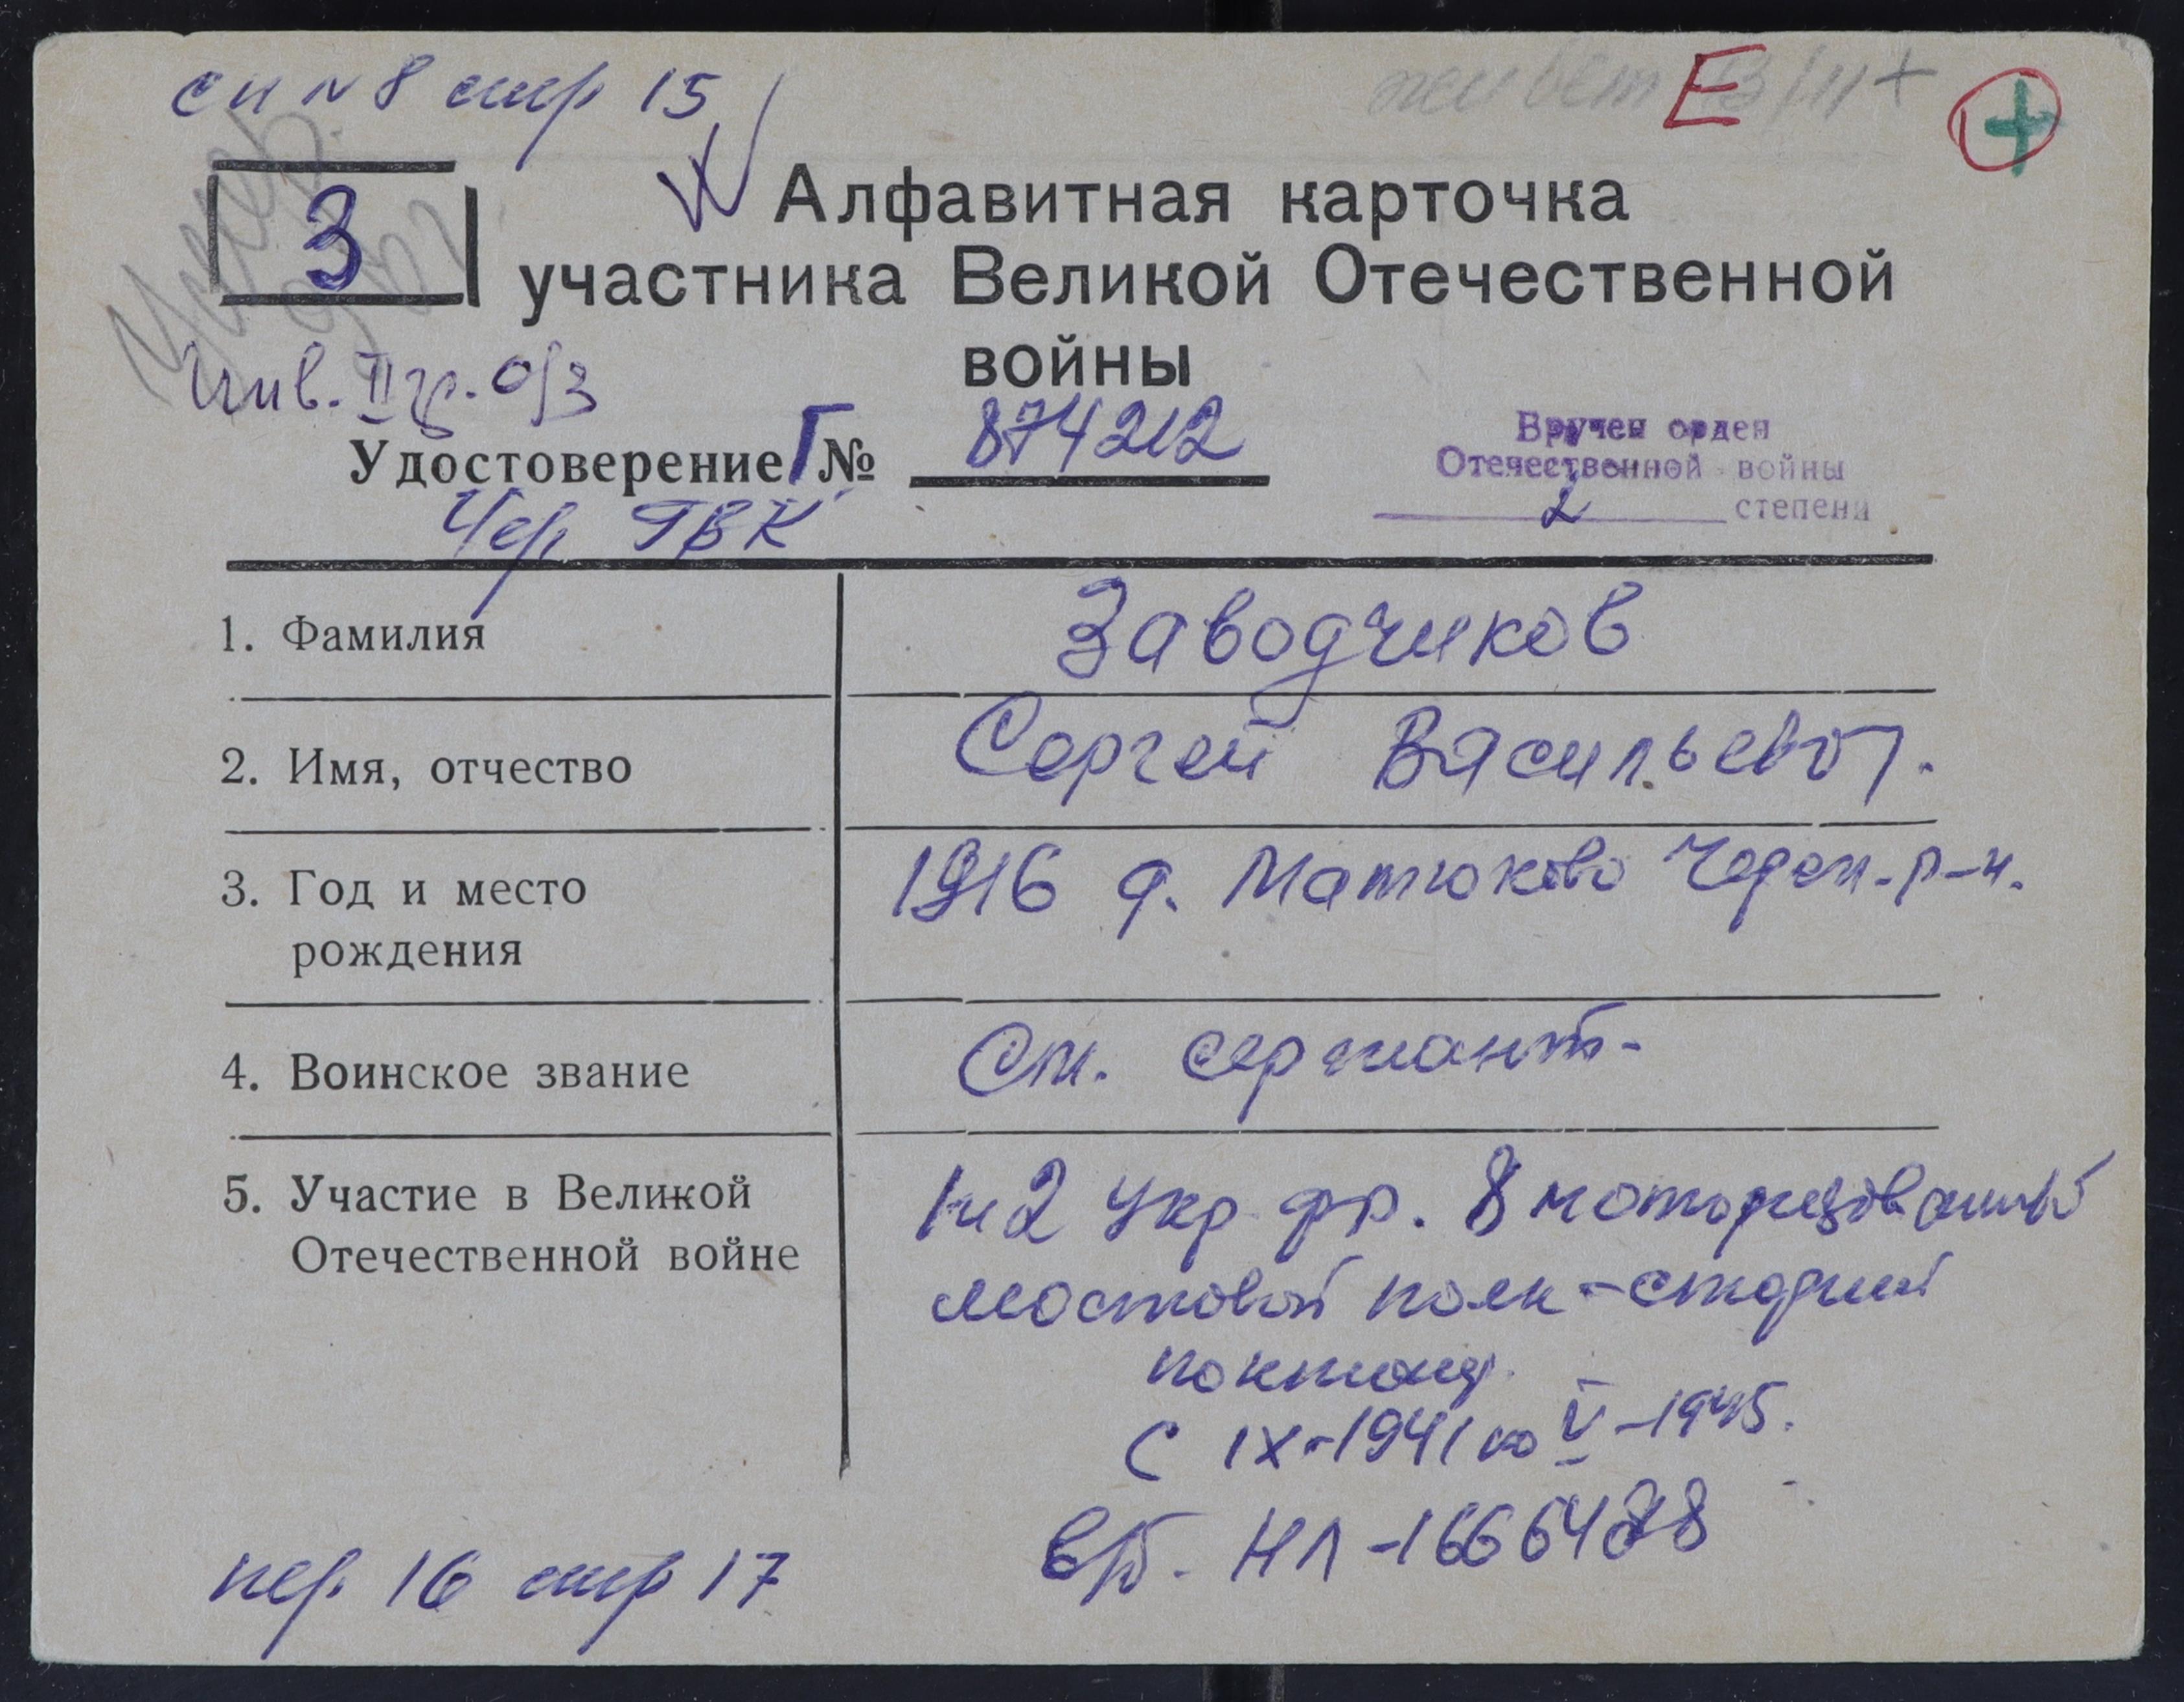 сп №8 стр 15
Е
+
Умер
3
Алфавитная карточка
участника Великой Отечественной
войны
Инв. II гр. о/з
Удостоверение Г № 874212
Вручен орден
Отечественной войны
2 степени
Чер ГВК
1. Фамилия Заводчиков
2. Имя, отчество Сергей Васильевич.
3. Год и место 1916 д. Матюково Череп. р-н.
рождения
4. Воинское звание Ст. сержант-
5. Участие в Великой 1 и 2 Укр фр. 8 моторизованный
Отечественной войне мостовой полк - старший
С IX-1941 по V-1945.
в/б. НЛ-1666488
пер. 16 стр 17